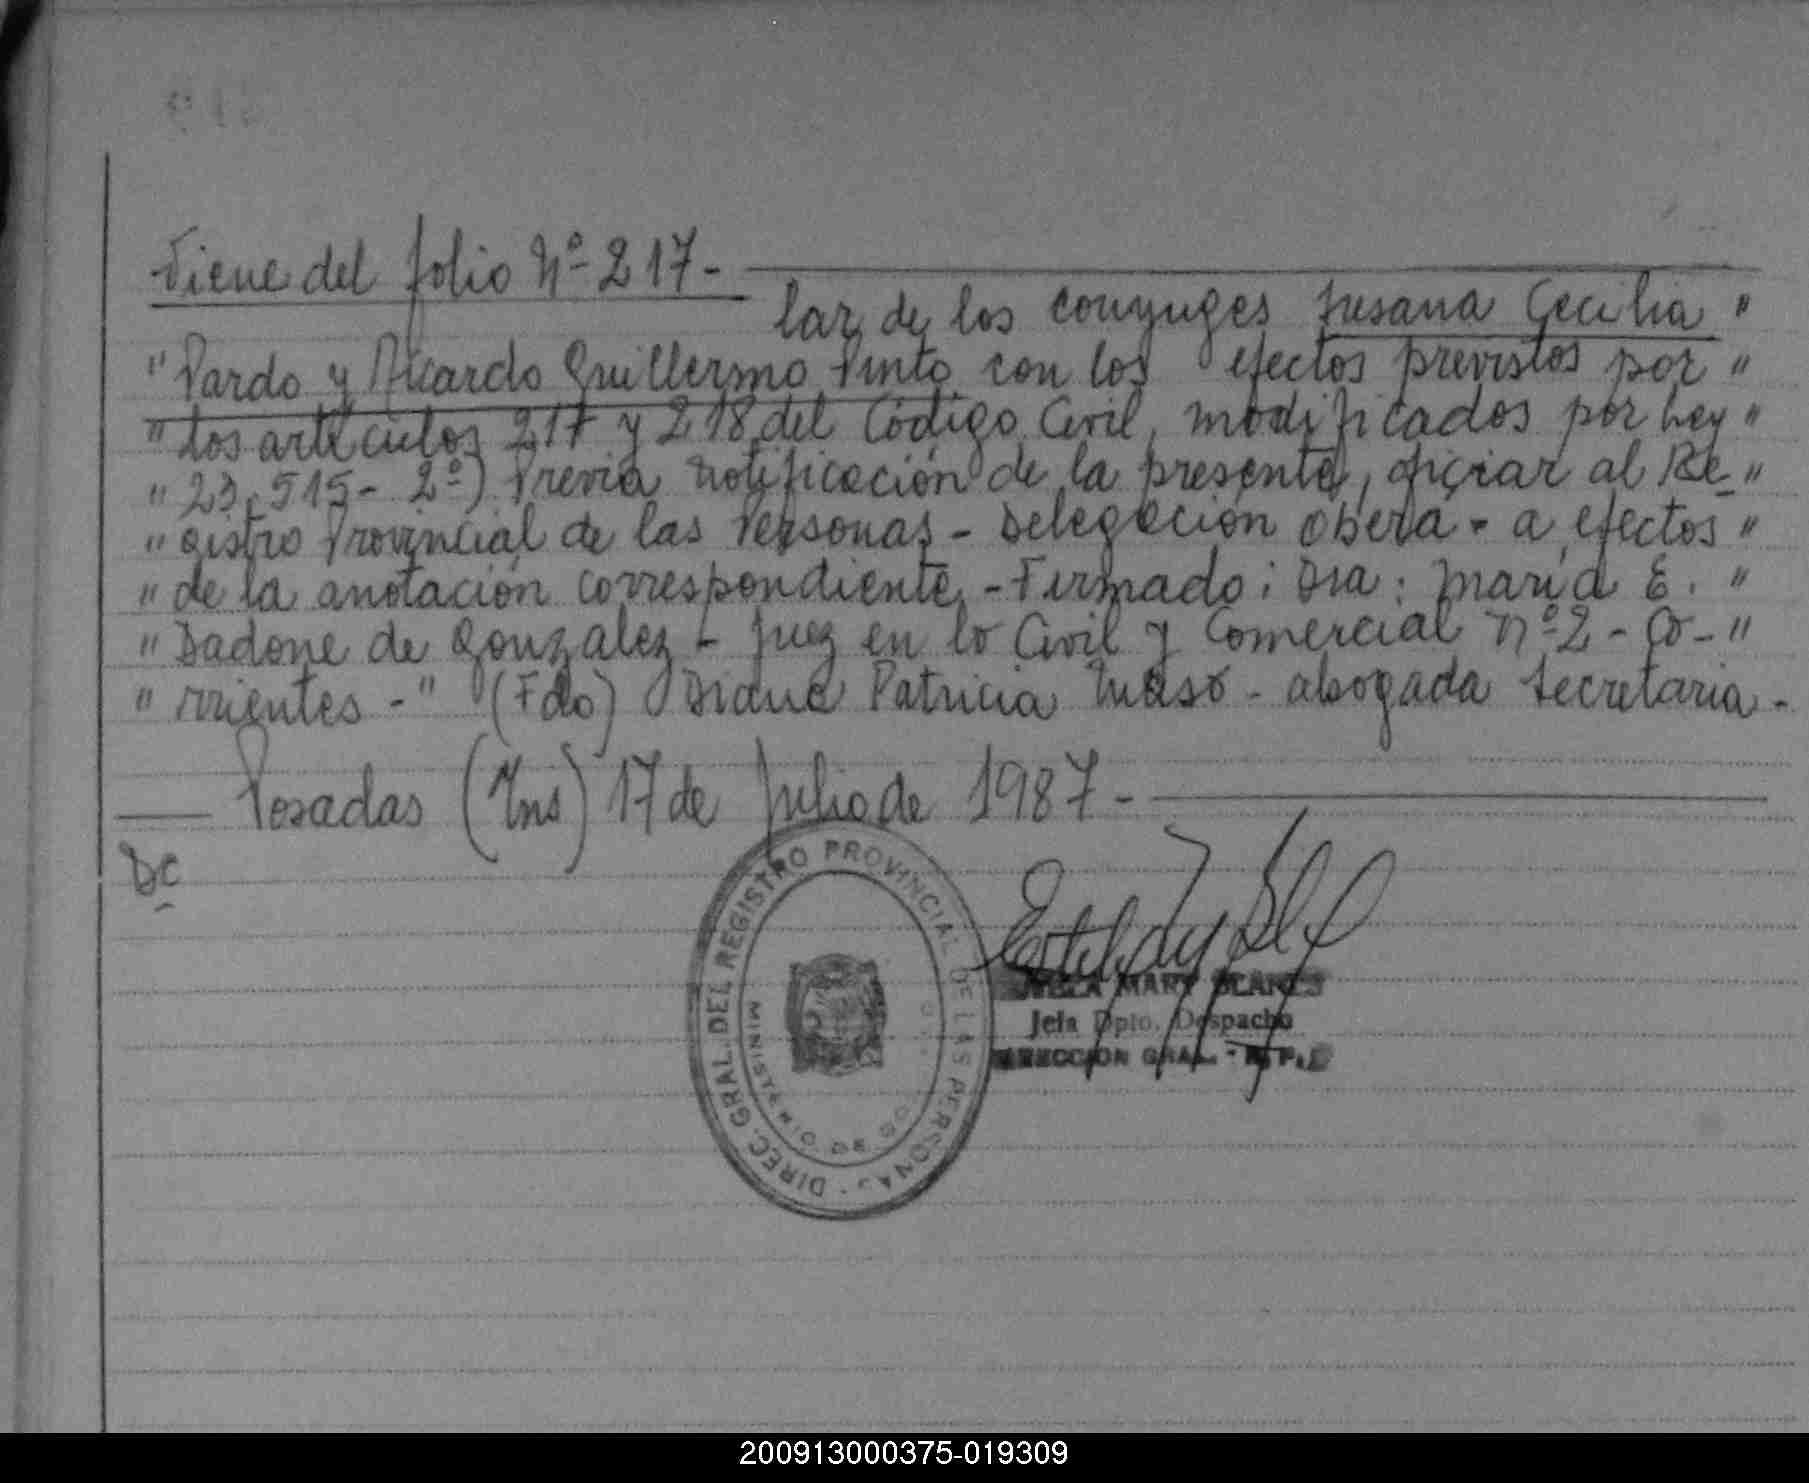 Viene del folio Nº 217-
lar de los conyuges Susana Cecilia "
" Pardo y Ricardo Guillermo Pinto con los efectos previstos por "
" los artículos 217 y 218 del Código Civil, modificados por Ley "
" 23.515- 2º) Previa notificación de la presente, oficiar al Re- "
" gistro Provincial de las Personas - Delegación Obera - a efectos "
" de la anotación correspondiente - Firmado: Dra: María E. "
" Dadone de Gonzalez - Juez en lo Civil y Comercial Nº 2 - Co- "
" rrientes -" (Fdo) Diana Patricia - abogada Secretaria -
Posadas (Mns) 17 de Julio de 1987-
DC
DIREC. GRAL. DEL REGISTRO PROVINCIAL DE LAS PERSONAS
MINISTERIO DE GO
MARY BLANES
Jefa Dpto. Despacho
DIRECCION GRAL. - R. P. P.
200913000375-019309